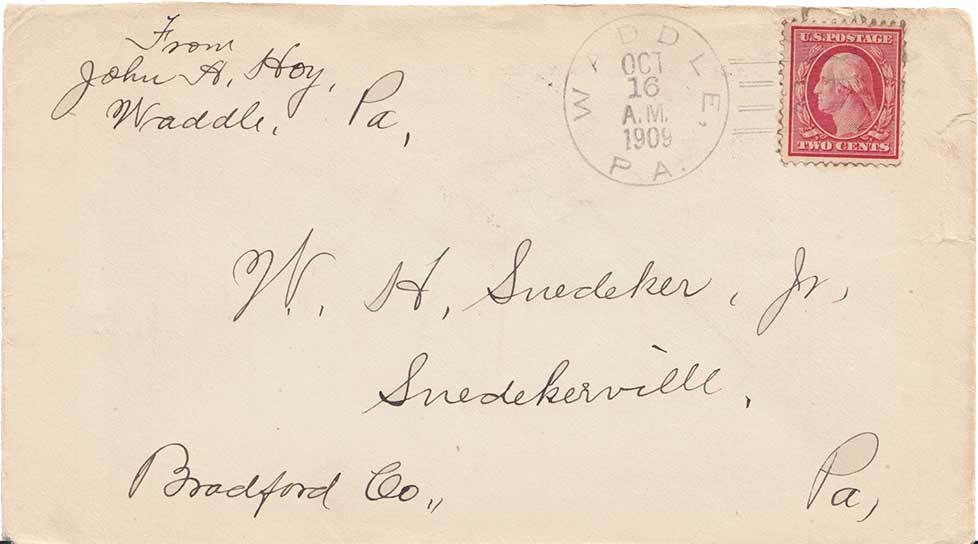 From
John A. Hoy,
Waddle, Pa,
WADDLE,
OCT
16
A.M.
1909
PA.
U.S. POSTAGE
TWO CENTS
W. H. Snedeker, Jr,
Snedekerville,
Bradford Co., Pa,